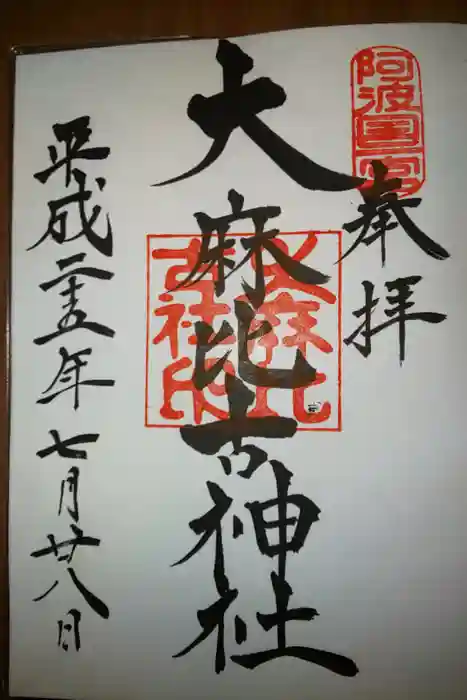 阿波国一宮
奉拝
大麻比古神社
大麻比
古社印
平成二十五年七月廿八日